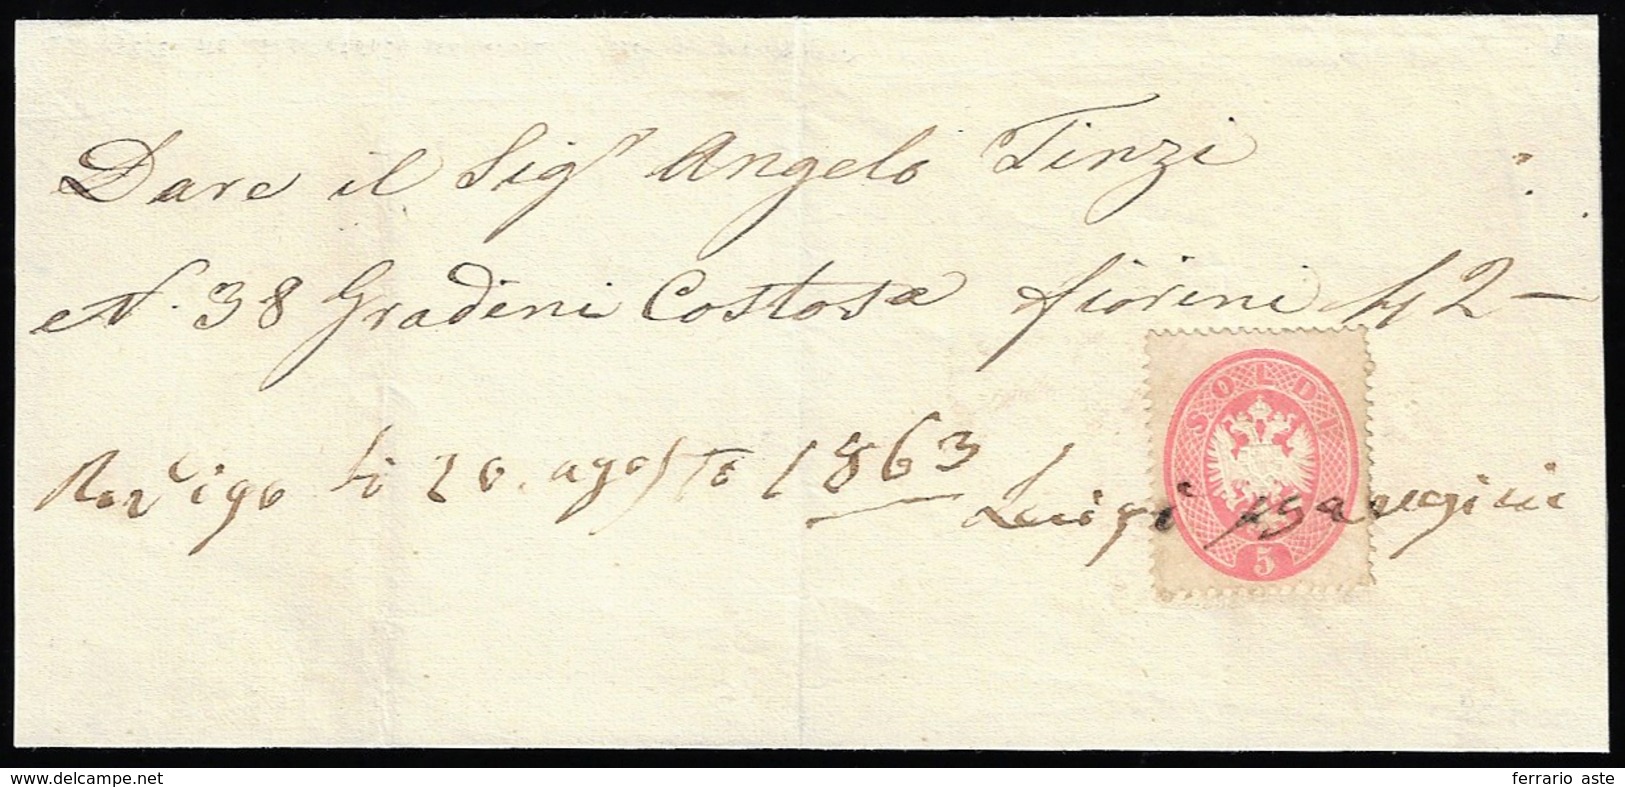 Dare il Sigr Angelo Tinzi
N. 38 Gradeni Costosa fiorini 42 –
SOLDI
Rovigo li 20. agosto 1863
Luigi
5
www.delcampe.net
ferrario aste